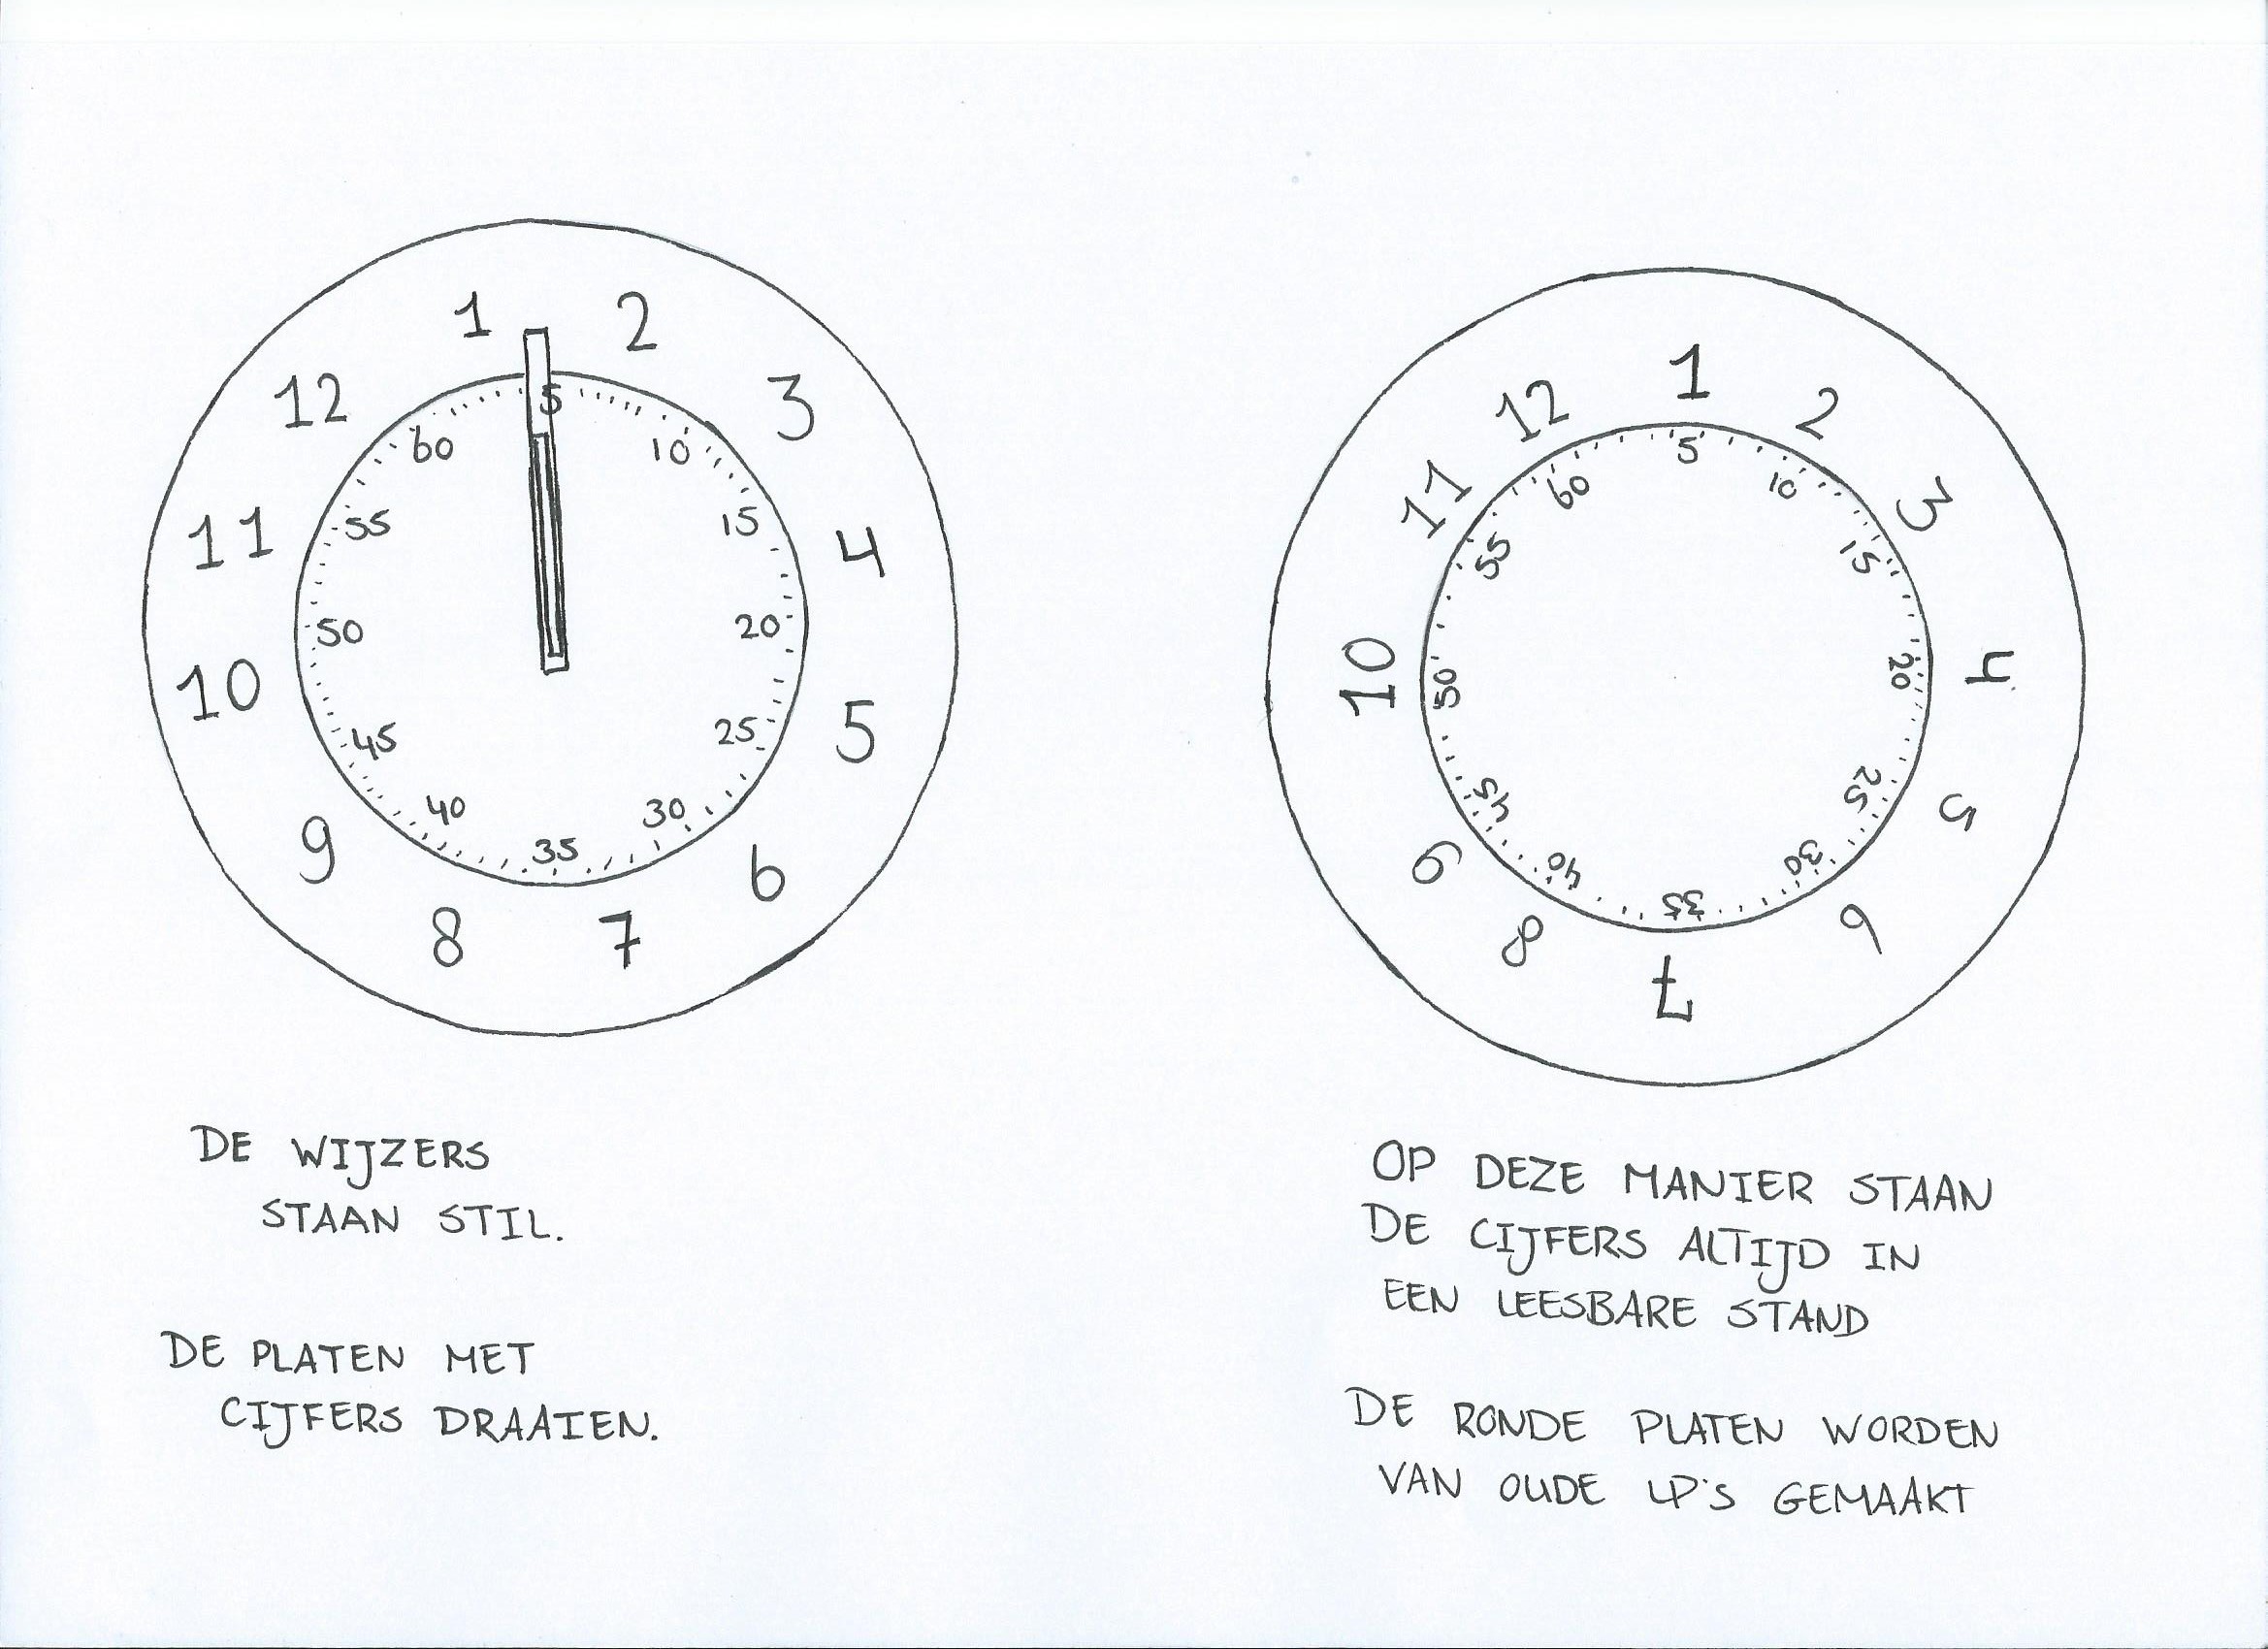 1
2
3
4
5
6
7
8
9
10
11
12
5
10
15
20
25
30
35
40
45
50
55
60
DE WIJZERS
STAAN STIL.
DE PLATEN MET
CIJFERS DRAAIEN.
1
2
3
4
5
6
7
8
9
10
11
12
5
10
15
20
25
30
35
40
45
50
55
60
OP DEZE MANIER STAAN
DE CIJFERS ALTIJD IN
EEN LEESBARE STAND
DE RONDE PLATEN WORDEN
VAN OUDE LP'S GEMAAKT